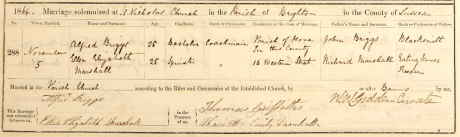 1864. Marriage solemnized at St Nicholas Church in the Parish of Brighton in the County of Sussex
When Married. Name and Surname. Age. Condition. Rank or Profession. Residence at the time of Marriage. Father's Name and Surname. Rank or Profession of Father.
288 November 5 Alfred Briggs 25 Bachelor Coachman Parish of Hove In this County John Briggs Blacksmith
Ellen Elizabeth Marshall 25 Spinster 16 Western Street Richard Marshall Eating house Keeper
Married in the Parish Church according to the Rites and Ceremonies of the Established Church, by after Banns by me,
This Marriage was solemnized between us, Alfred Briggs
Ellen Elizabeth Marshall
in the Presence of us, Thomas Griffiths
Emily Marshall
Curate